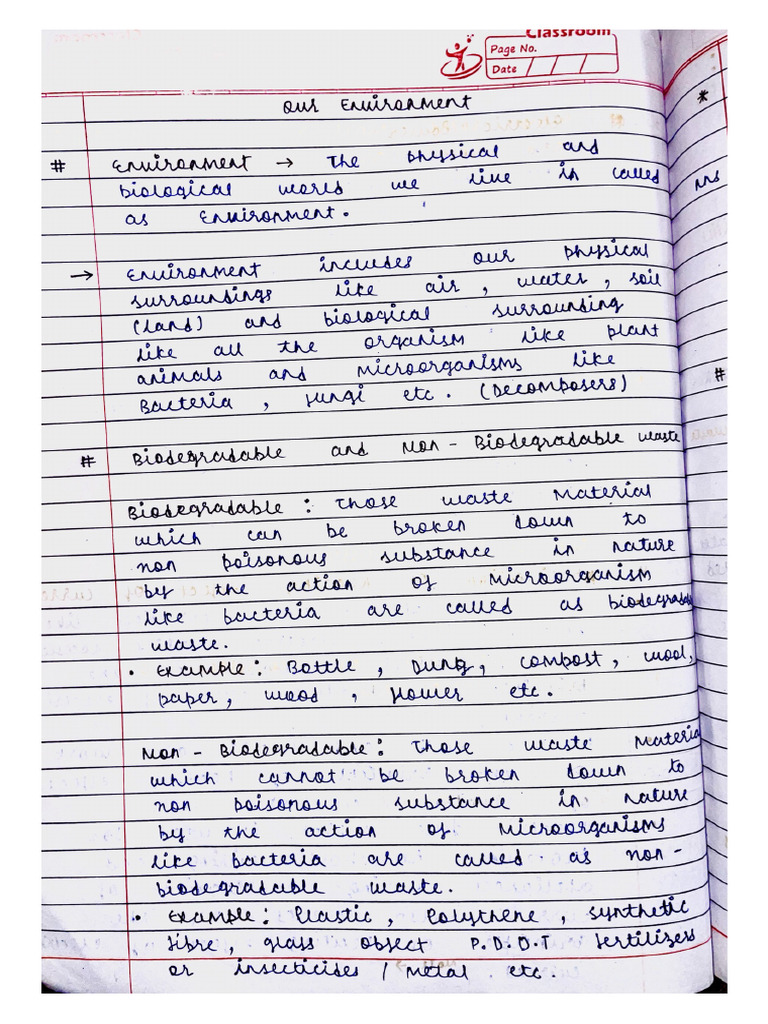 Classroom
Page No.
Date / / /
Our Environment
# Environment → The physical and
biological world we live in called
as Environment.
→ Environment includes our physical
surroundings like air, water, soil
(land) and biological surrounding
like all the organism like plant
animals and microorganisms like
Bacteria, fungi etc. (Decomposers)
# Biodegradable and Non-Biodegradable waste
Biodegradable: Those waste Material
which can be broken down to
non poisonous substance in nature
by the action of microorganism
like bacteria are called as biodegradable
waste.
• Example: Bottle, Dung, compost, wool,
paper, wood, flower etc.
Non-Biodegradable: Those waste Material
which cannot be broken down to
non poisonous substance in nature
by the action of microorganisms
like bacteria are called as non-
biodegradable waste.
• Example: Plastic, Polythene, synthetic
fibre, glass object P.D.D.T fertilizers
or insecticides / metal etc.